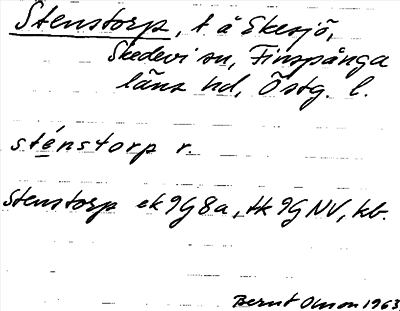 Stenstorp, t å Ekesjö,
Skedevi sn, Finspånga
läns hd, Östg. l.
sténstorp r.
Stenstorp ek 9G8a, tk 9G NV, kb.
Bernt Olsson 1963.